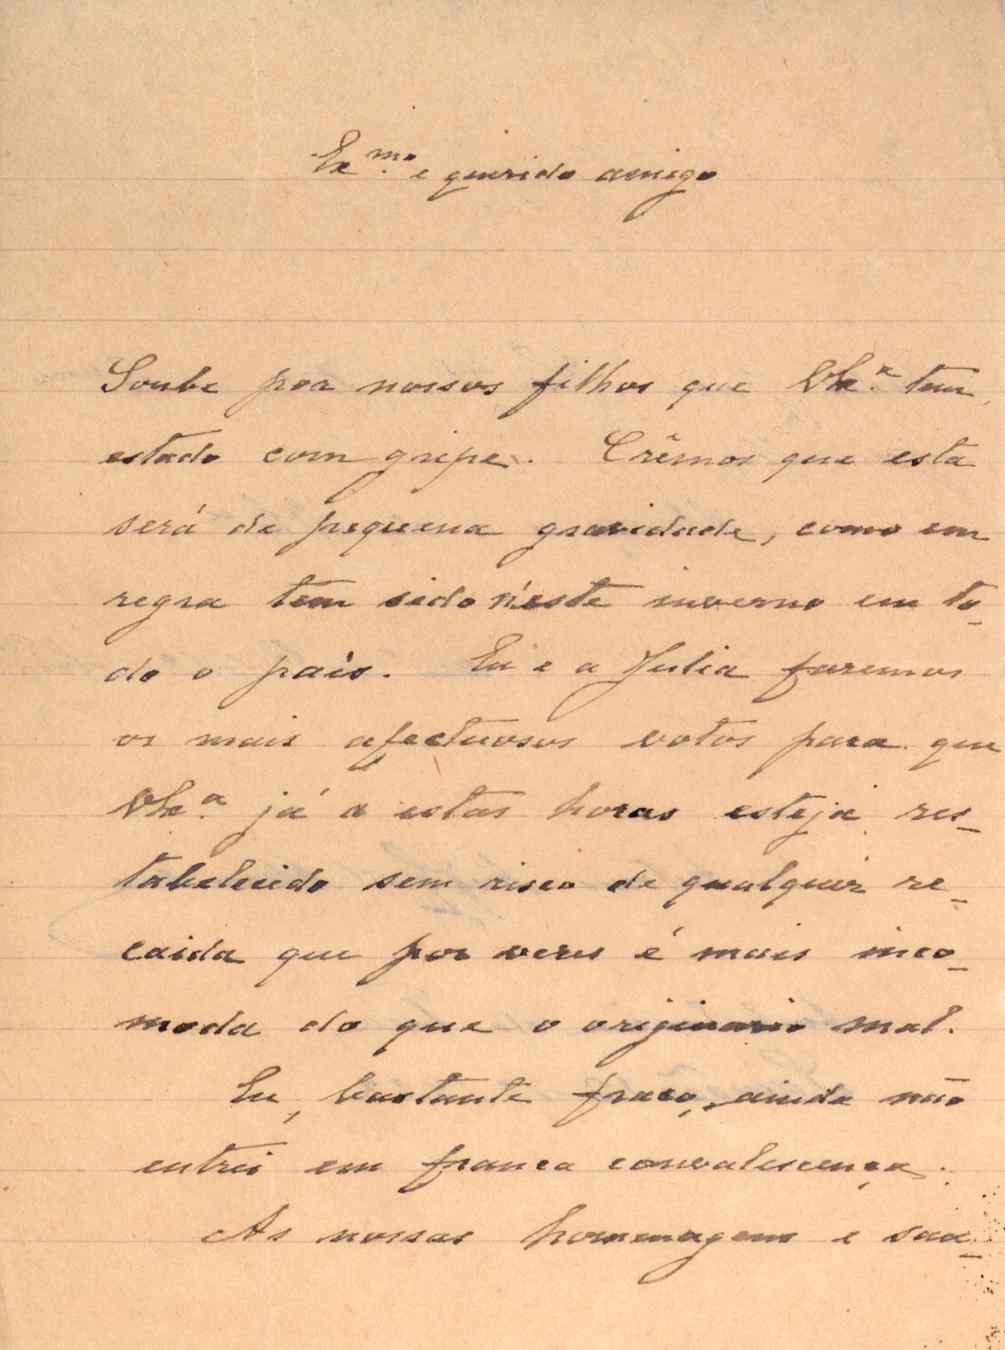 Ex.mo e querido amigo
Soube por nossos filhos que VEx.a tem
estado com gripe. Crêmos que esta
será de pequena gravidade, como em
regra tem sido n'este inverno em to-
do o pais. Eu e a Julia faremos
os mais afectuosos votos para que
VEx.a já a estas horas esteja res-
tabelecido sem risco de qualquer re-
caida que por veses é mais inco-
moda do que o originario mal.
Eu, bastante fraco, ainda não
entrei em franca convalescença.
As nossas homenagens e sau-